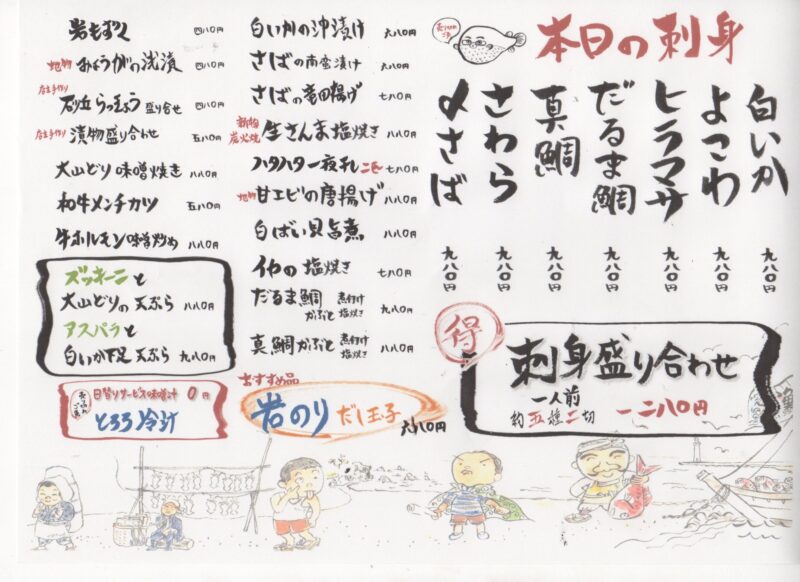 本日の刺身
白いか 九八〇円
よこわ 九八〇円
ヒラマサ 九八〇円
だるま鯛 九八〇円
真鯛 九八〇円
さわら 九八〇円
〆さば 九八〇円
得
刺身盛り合わせ
一人前
約五種二切 一二八〇円
白いかの沖漬け 六八〇円
さばの南蛮漬け 六八〇円
さばの竜田揚げ 七八〇円
新物 炭火焼 生さんま塩焼き 八八〇円
ハタハタ一夜干 二匹 七八〇円
地物 甘エビの唐揚げ 八八〇円
白ばい貝旨煮 八八〇円
イカの塩焼き 七八〇円
だるま鯛かぶと 煮付け 塩焼き 九八〇円
真鯛かぶと 煮付け 塩焼き 八八〇円
おすすめ品
岩のりだし玉子 六八〇円
岩もずく 四八〇円
地物 みょうがの浅漬 四八〇円
店主手作り 砂丘らっきょう盛り合せ 四八〇円
店主手作り 漬物盛り合わせ 五八〇円
大山どり味噌焼き 八八〇円
和牛メンチカツ 五八〇円
牛ホルモン味噌炒め 八八〇円
ズッキーニと
大山どりの天ぷら 八八〇円
アスパラと
白いか下足天ぷら 九八〇円
日替りサービスの味噌汁 0円
とろろ冷汁